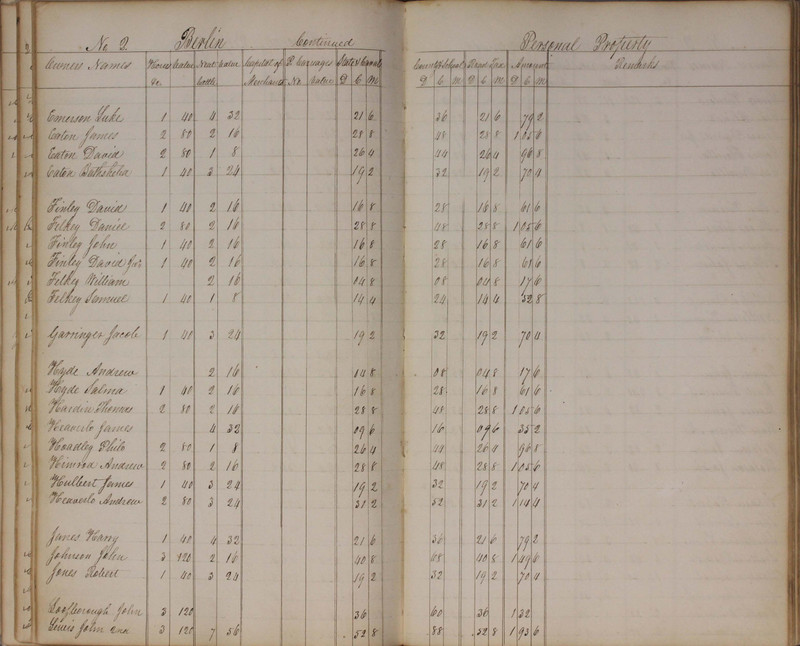 No 2 Berlin Continued Personal Property
Owners Names Horses Value Neat Value Capital of P Carriages State & Canal County & School Road Tax Amount Remarks
&c. Cattle Merchants No. Value D C M D C M D C M D C M
Emerson Luke 1 40 4 32 21 6 36 21 6 79 2
Eaton James 2 80 2 16 28 8 48 28 8 1 05 6
Eaton David 2 80 1 8 26 4 44 26 4 96 8
Eaton 1 40 3 24 19 2 32 19 2 70 4
Finley David 1 40 2 16 16 8 28 16 8 61 6
Felkey Daniel 2 80 2 16 28 8 48 28 8 1 05 6
Finley John 1 40 2 16 16 8 28 16 8 61 6
Finley David Jur 1 40 2 16 16 8 28 16 8 61 6
Felkey William 2 16 04 8 08 04 8 17 6
Felkey Samuel 1 40 1 8 14 4 24 14 4 52 8
Garringer Jacob 1 40 3 24 19 2 32 19 2 70 4
Hyde Andrew 2 16 04 8 08 04 8 17 6
Hyde Salma 1 40 2 16 16 8 28 16 8 61 6
Hardin Thomas 2 80 2 16 28 8 48 28 8 1 05 6
James 4 32 09 6 16 09 6 35 2
Hoadley Philo 2 80 1 8 26 4 44 26 4 96 8
Himrod Andrew 2 80 2 16 28 8 48 28 8 1 05 6
Hulbert James 1 40 3 24 19 2 32 19 2 70 4
Andrew 2 80 3 24 31 2 52 31 2 1 14 4
James Harry 1 40 4 32 21 6 36 21 6 79 2
Johnson John 3 120 2 16 40 8 68 40 8 1 49 6
Jones Robert 1 40 3 24 19 2 32 19 2 70 4
Loofborough John 3 120 36 60 36 1 32
Lewis John 2nd 3 120 7 56 52 8 88 52 8 1 93 6